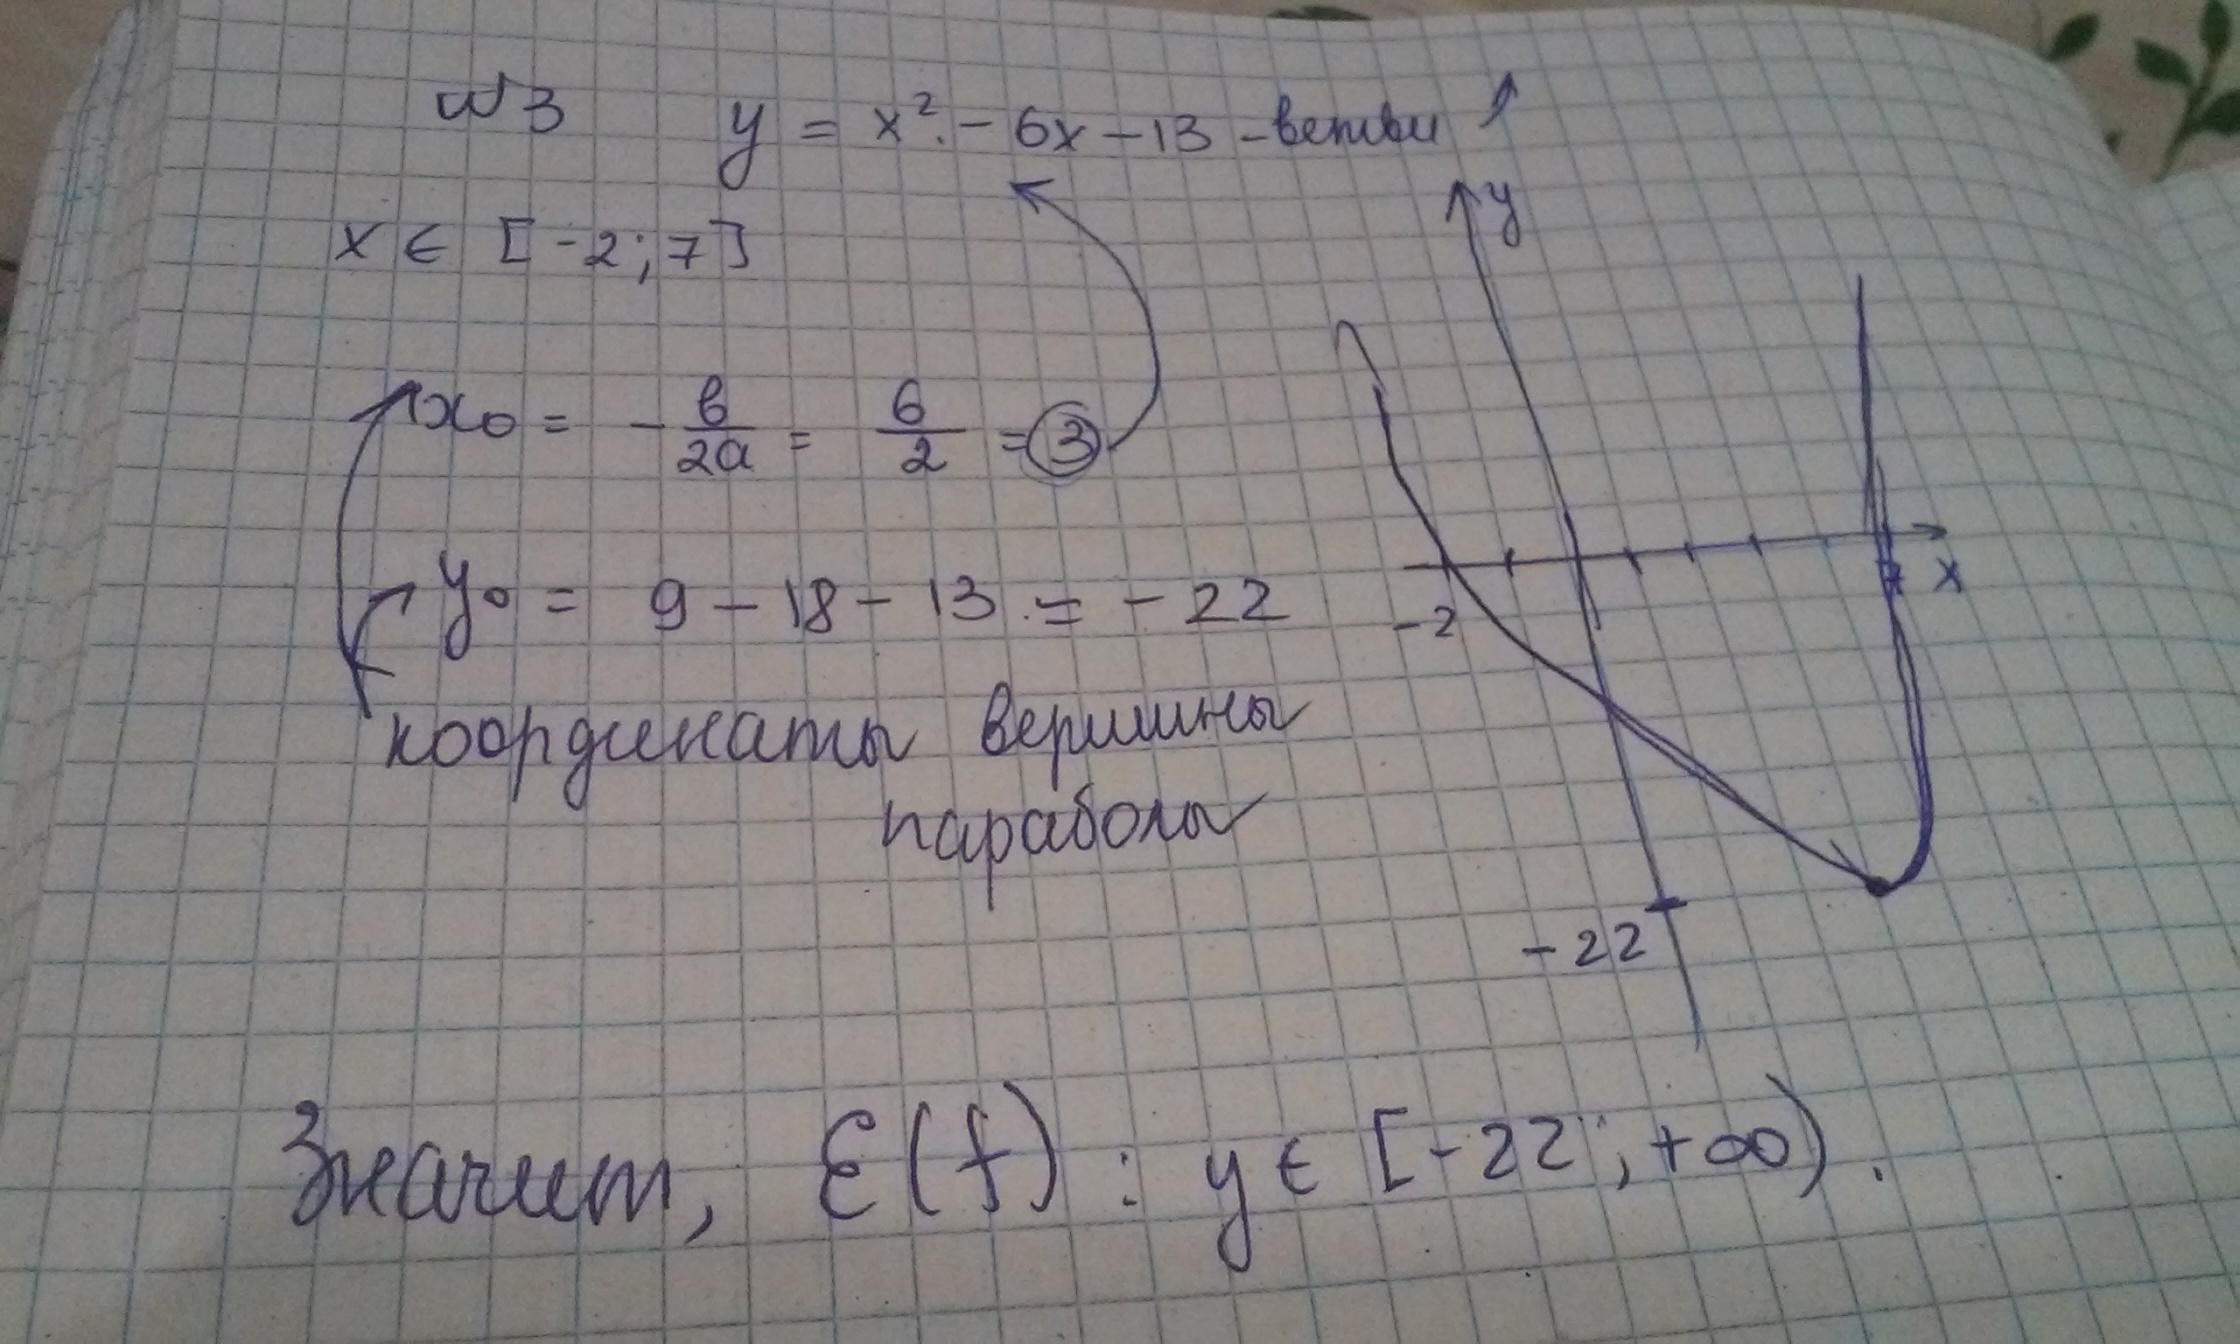 №3 y = x² - 6x - 13 - ветви ↑
x ∈ [-2; 7]
x₀ = - в/2a = 6/2 = 3
y₀ = 9 - 18 - 13 = -22
координаты вершины
параболы
y
-2
7 x
-22
Значит, E(f): y ∈ [-22; +∞).